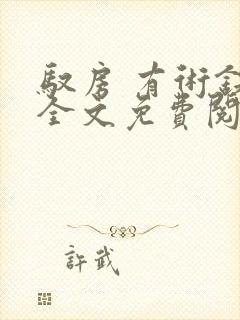 馭房有術
全文免費閱
許武